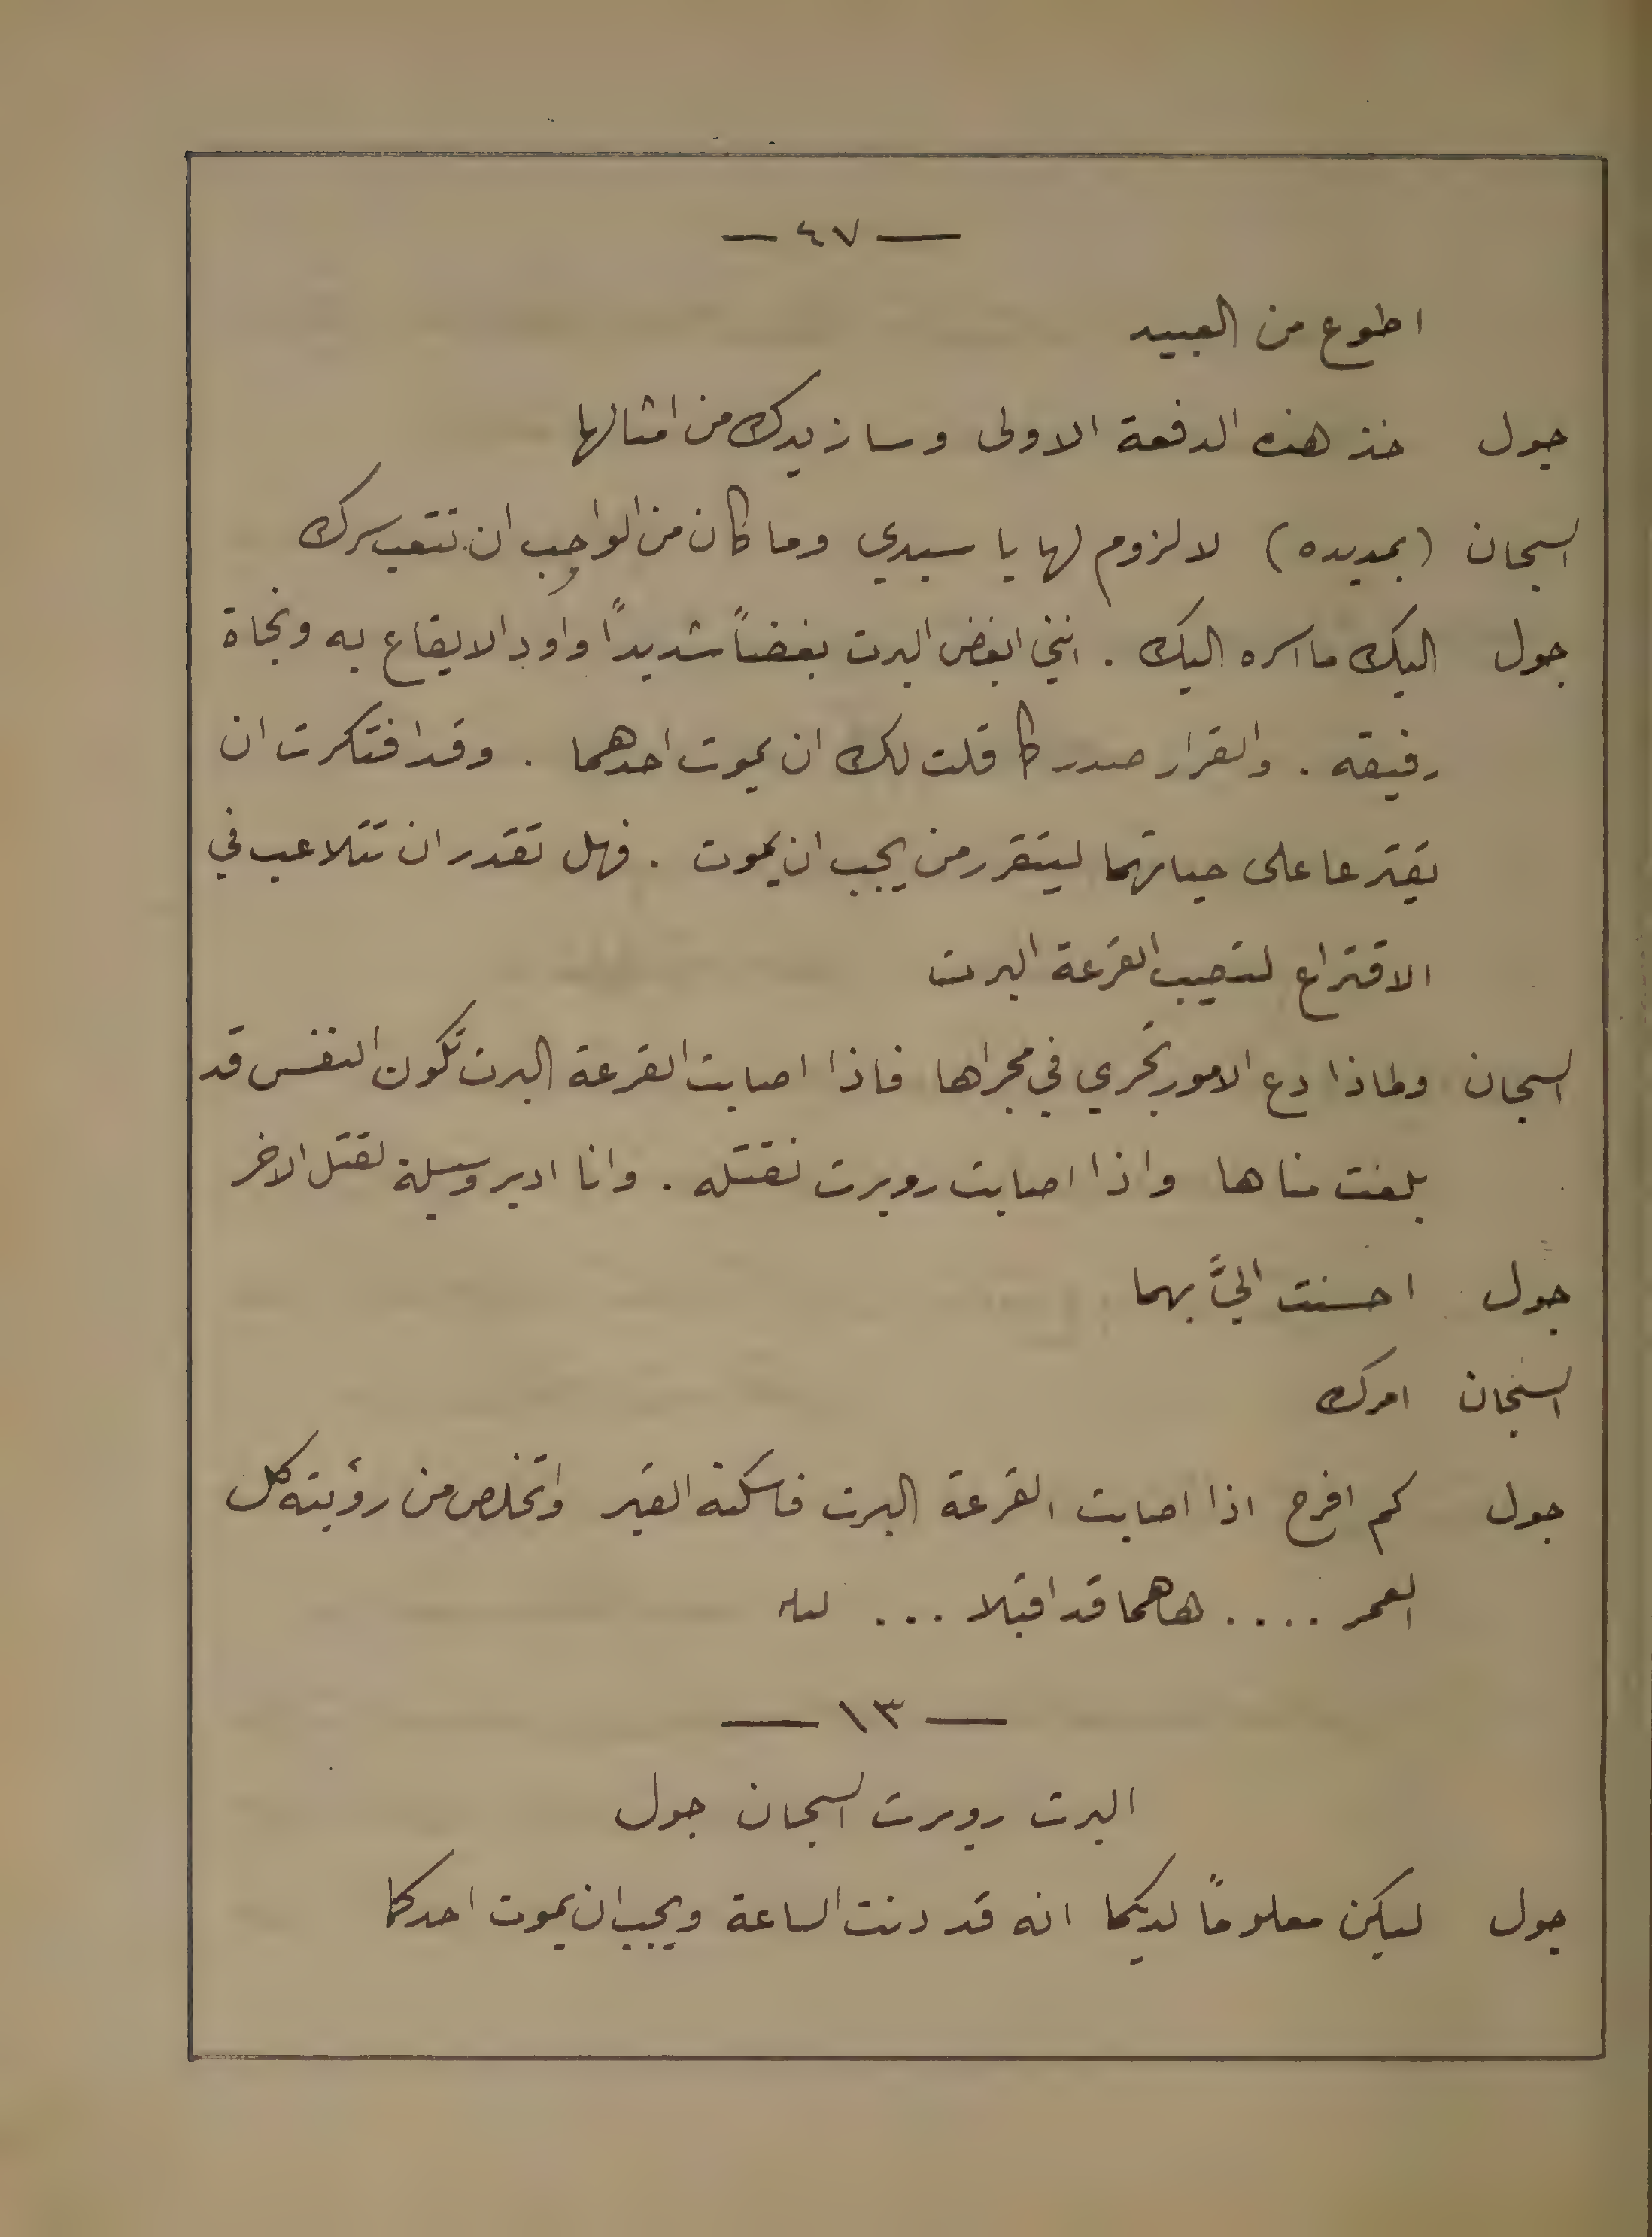 — ٤٧ —
اطوع من العبيد
جول خذ هذه الدفعة الاولى وسازيدك من امثالها
السجان (يمد يده) لا لزوم لها يا سيدي وما كان من الواجب ان تتعب سرك
جول اليك ما اسره اليك . انني ابغض البرت بغضاً شديداً واود الايقاع به ونجاة
رفيقه . والقرار صدر كما قلت لك ان يموت احدهما . وقد افتكرت ان
يقترعا على حياتهما ليتقرر من يجب ان يموت . فهل تقدر ان تتلاعب في
الاقتراع لتصيب القرعة البرت
السجان ولماذا دع الامور تجري في مجراها فاذا اصابت القرعة البرت تكون النفس قد
بلغت مناها واذا اصابت روبرت نقتله . وانا ادبر وسيلة لقتل الاخر
جول احسنت اليَّ بهما
السجان امرك
جول كم افرح اذا اصابت القرعة البرت فاسكنه القبر واتخلص من رؤيته كل
العمر .... هاهما قد اقبلا ...
— ١٣ —
البرت روبرت السجان جول
جول ليكن معلوماً لديكما انه قد دنت الساعة ويجب ان يموت احدكما